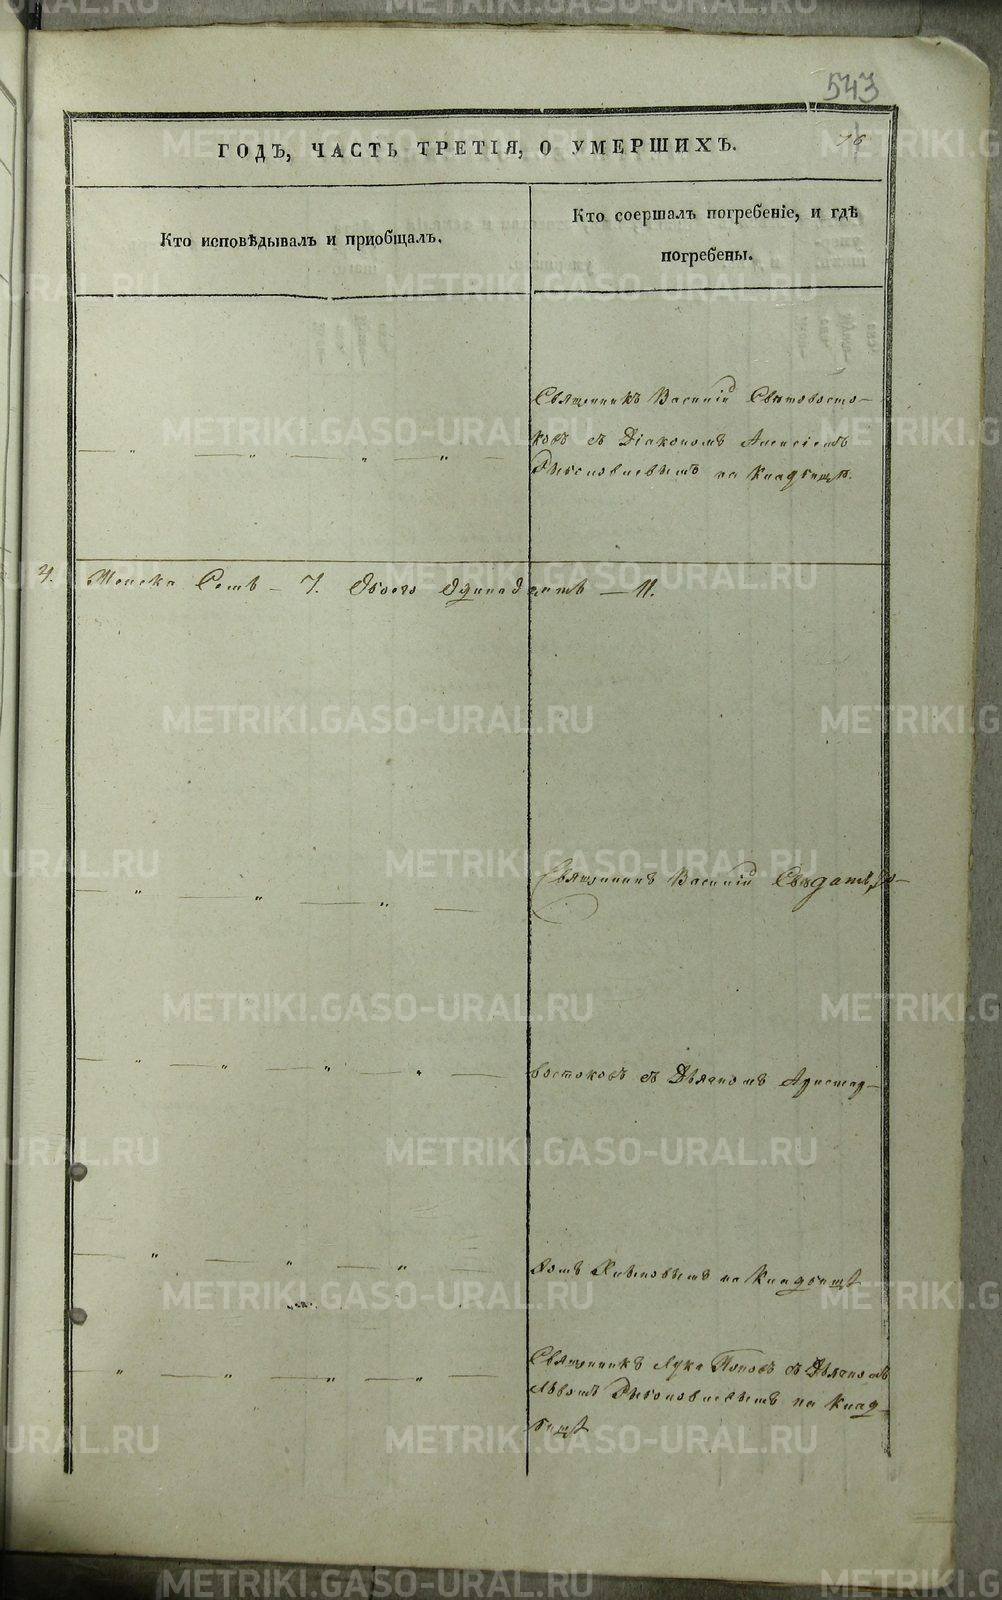 543
76
ГОДЪ, ЧАСТЬ ТРЕТІЯ, О УМЕРШИХЪ.
Кто исповѣдывалъ и пріобщалъ.
Кто соершалъ погребеніе, и гдѣ
погребены.
Священникъ Василій Святовосто-
ковъ съ Діакономъ Алексіемъ
на Кладбищѣ.
4. Женска Семь - 7. Обоего Одинадцать - 11.
Священникъ Василій
востоковъ съ Дьячкомъ Аристар-
хомъ на Кладбищѣ
Священникъ Лука Поповъ съ Дьячкомъ
на Клад-
бищѣ
METRIKI.GASO-URAL.RU